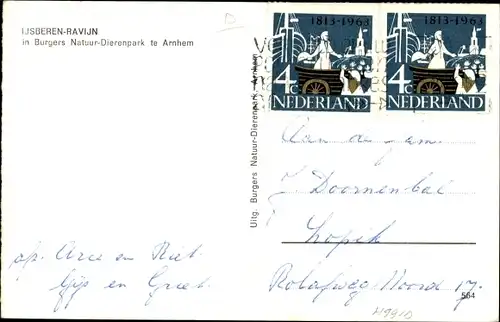 IJSBEREN-RAVIJN
in Burgers Natuur-Dierenpark te Arnhem
D
1813-1963
4c
NEDERLAND
1813-1963
4c
NEDERLAND
Uitg. Burgers Natuur-Dierenpark - Arnhem
Aan de fam.
J. Doornenbal
Lopik
Rolafweg-Noord 17.
564
afz. Arie en Riet
Gijs en Greet